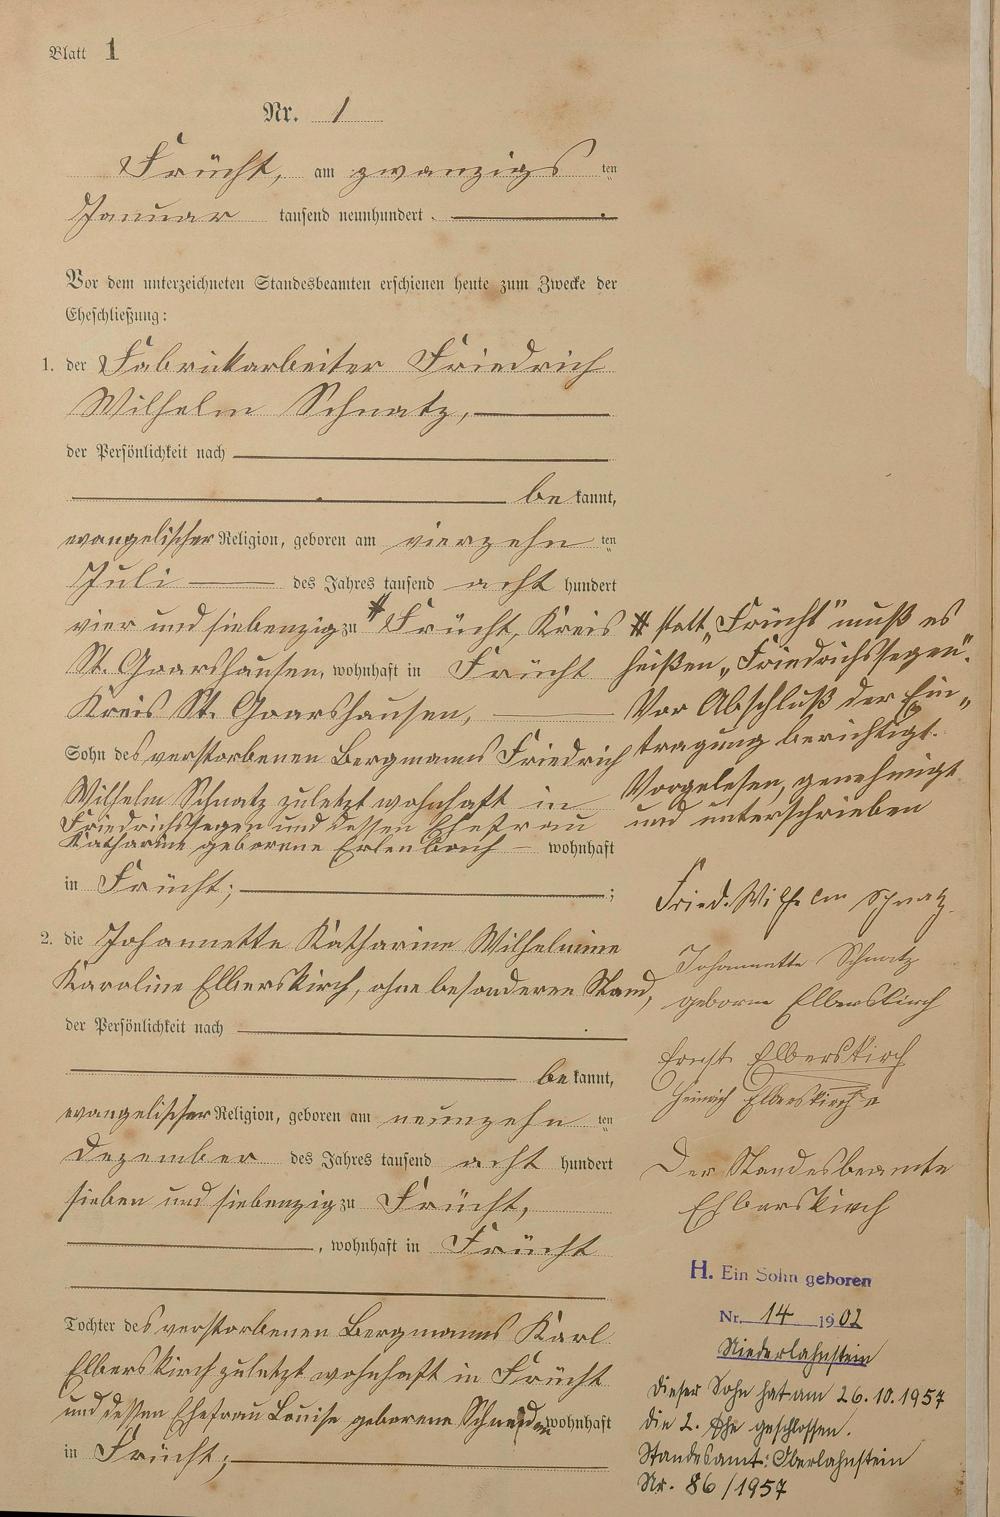 Blatt 1
Nr. 1
Frücht, am zwanzigs ten
Januar tausend neunhundert
Vor dem unterzeichneten Standesbeamten erschienen heute zum Zwecke der
Eheschließung:
1. der Fabrikarbeiter Friedrich
Wilhelm Schnatz,
der Persönlichkeit nach
be kannt,
evangelischer Religion, geboren am vierzehn ten
Juli des Jahres tausend acht hundert
vier und siebenzig zu # Frücht, Kreis
St. Goarshausen, wohnhaft in Frücht
Kreis St. Goarshausen,
Sohn des verstorbenen Bergmanns Friedrich
Wilhelm Schnatz zuletzt wohnhaft in
Friedrichssegen und dessen Ehefrau
Katharine geborene Erlenbach wohnhaft
in Frücht; ;
2. die Johannette Katharine Wilhelmine
Karoline Elberskirch, ohne besonderen Stand,
der Persönlichkeit nach
be kannt,
evangelischer Religion, geboren am neunzehn ten
Dezember des Jahres tausend acht hundert
sieben und siebenzig zu Frücht,
, wohnhaft in Frücht
Tochter des verstorbenen Bergmanns Karl
Elberskirch zuletzt wohnhaft in Frücht
und dessen Ehefrau Louise geborene wohnhaft
in Frücht;
# statt „Frücht" muß es
heißen „Friedrichssegen".
Vor Abschluß der Ein„
tragung berichtigt.
Vorgelesen, genehmigt
und unterschrieben
Fried. Wilhelm Schnatz.
Johannette Schnatz
geborne Elberskirch
Ernst Elberskirch
Heinrich Elberskirch
Der Standesbeamte
Elberskirch
H. Ein Sohn geboren
Nr. 14 1902
Niederlahnstein
Dieser Sohn hat am 26.10.1957
die 2. Ehe geschlossen.
Standesamt: Oberlahnstein
Nr. 86/1957